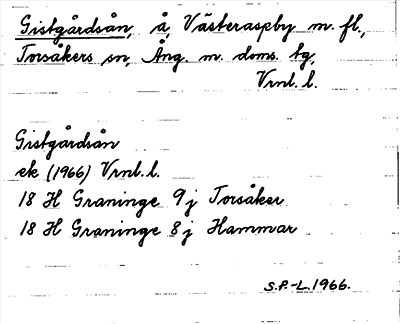 Gistgårdsån, å, Västeraspby m. fl.,
Torsåkers sn, Ång. m. doms. tg,
Vrnl. l.
Gistgårdsån
ek (1966) Vrnl. l.
18 H Graninge 9 j Torsåker
18 H Graninge 8 j Hammar
S.P.-L. 1966.